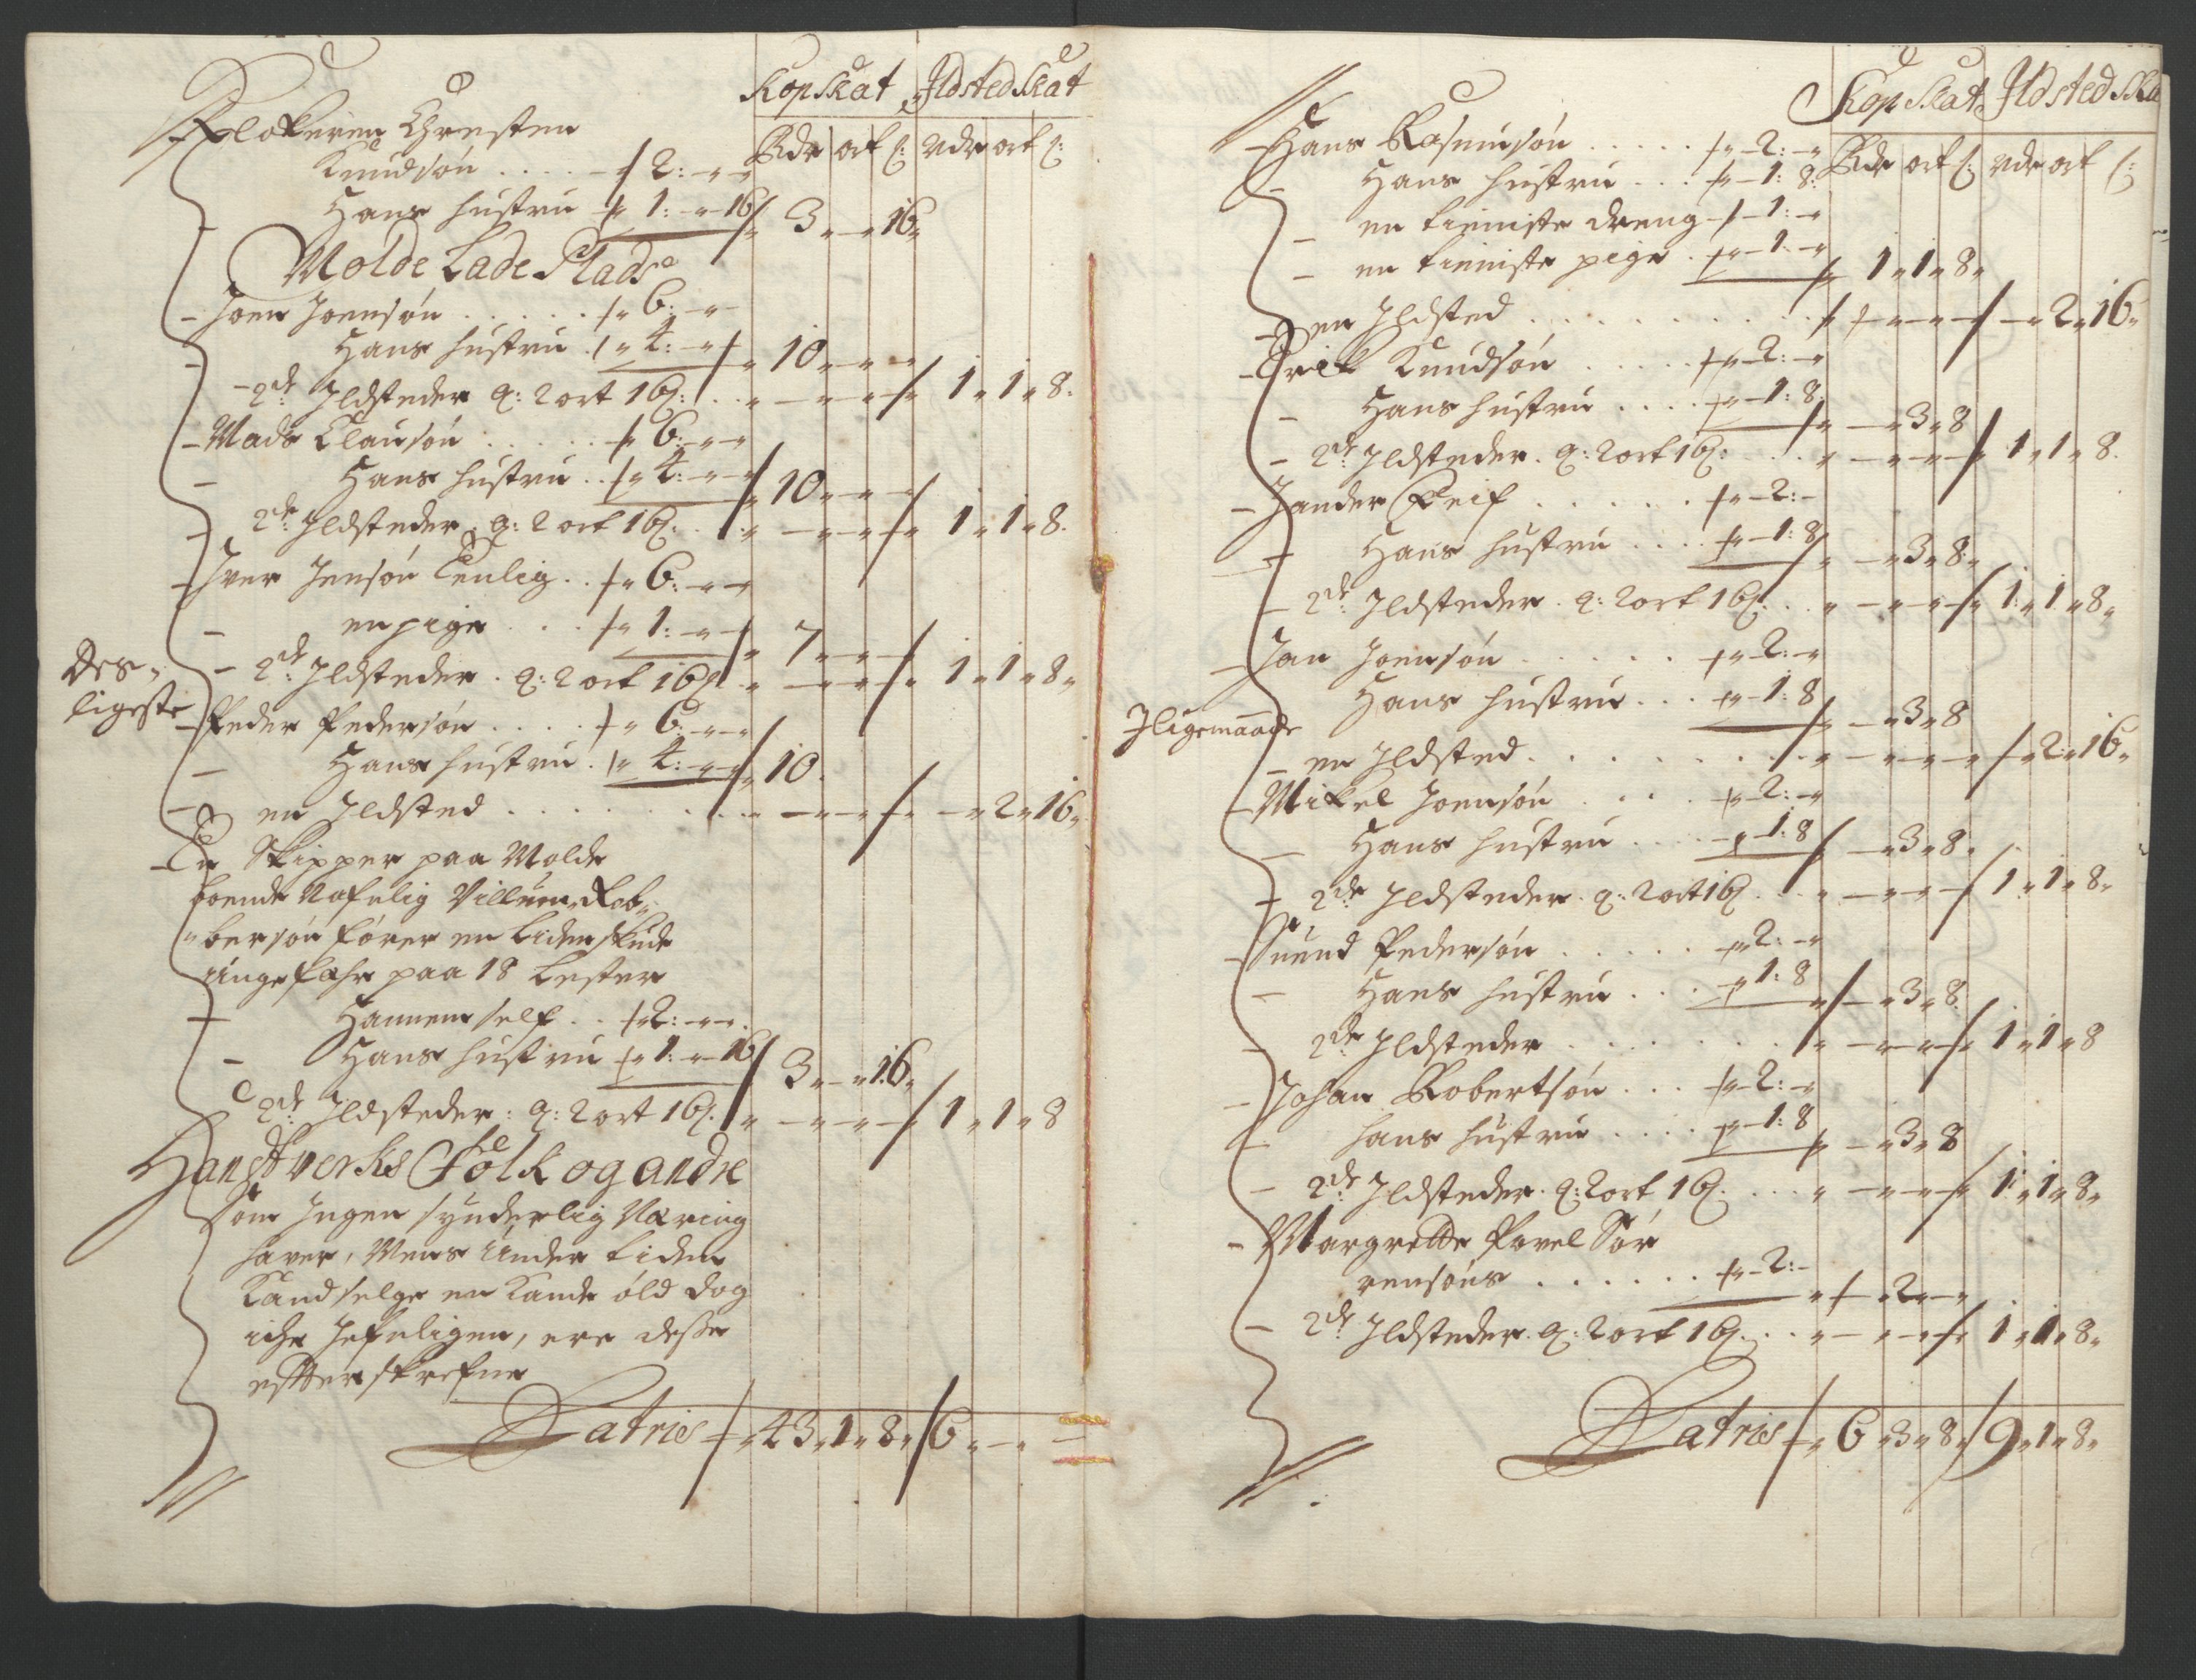 Kop Skat Ildsted Skat
Rdr ort ß: Rdr ort ß:
Klokeren Christen
Knudsøn . . . . 2: - -
Hans hustru 1: - 16 3 - 16
Molde Lade Plads
Joen Joensøn . . . . . 6: -
Hans hustru . 4: - 10 - -
2de Ildsteder a: 2 ort 16ß: . . 1 1 8.
Mads Clausøn . . . . . 6: -
Hans hustru . . 4: - 10 - -
2de Ildsteder a: 2 ort 16ß: . . 1 1 8.
Iver Jensøn Eenlig . . 6: - -
en pige . . . 1: - - 7 - -
Des-
ligeste
2de Ildsteder . a: 2 ort 16ß 1 1 8
Peder Pedersøn . . . . 6: - -
Hans hustru . 4: - - 10.
en Ildsted . . . . . . . . - 2 16
En Skipper paa Molde
boende Nafnlig Villum Rob-
bersøn fører en liden skude
ungefehr paa 18 lester
Hannem self . . 2: - -
Hans hustru 1: - 16 3 - 16
2de Ildsteder: a: 2 ort 16ß. 1 1 8
Handtverks Folk og andre
som Ingen synderlig Næring
haver, Mens Under tiden
Kand selge en Kande øld dog
iche Jefnligen, ere desse
effterskrefne
Latris 43 1 8 6 - -
Kop Skat Ildsted Skat
Rdr ort ß: Rdr ort ß:
Hans Rasmusøn . . . . . - 2: -
Hans hustru . . . - 1: 8:
en tieniste dreng - 1: -
en tieniste pige . - 1: - 1 1 8
en Ildsted . . . . . . . . . - 2 16
Erik Knudsøn . . . . . - 2: -
Hans hustru . . . . - 1: 8 - 3 8
2de Ildsteder . a: 2 ort 16ß: . . 1 1 8.
Jander Reif . . . . . . - 2: -
Hans hustru . . . . - 1: 8 - 3 8
2de Ildsteder . a: 2 ort 16ß . . 1 1 8
Jan Joensøn . . . . . . - 2: -
Hans hustru . . . - 1: 8 - 3 8
Iligemaade
en Ildsted . . . . . . . . - 2 16
Mikel Joensøn . . . . - 2: -
Hans hustru . . . . - 1: 8 - 3 8
2de Ildsteder . a: 2 ort 16ß . . 1 1 8
Suend Pedersøn . . . . . - 2: -
Hans hustru . . . - 1: 8 - 3 8
2de Ildsteder . . . . . . . 1 1 8
Johan Robertsøn . . . - 2: -
hans hustru . . . . - 1: 8 - 3 8
2de Ildsteder . a: 2 ort 16ß. . . 1 1 8
Margrette Povel Sør
rensøns . . . . . . - 2: - - 2 -
2de Ildsteder . a: 2 ort 16ß. . . 1 1 8
Latris 6 3 8 9 1 8